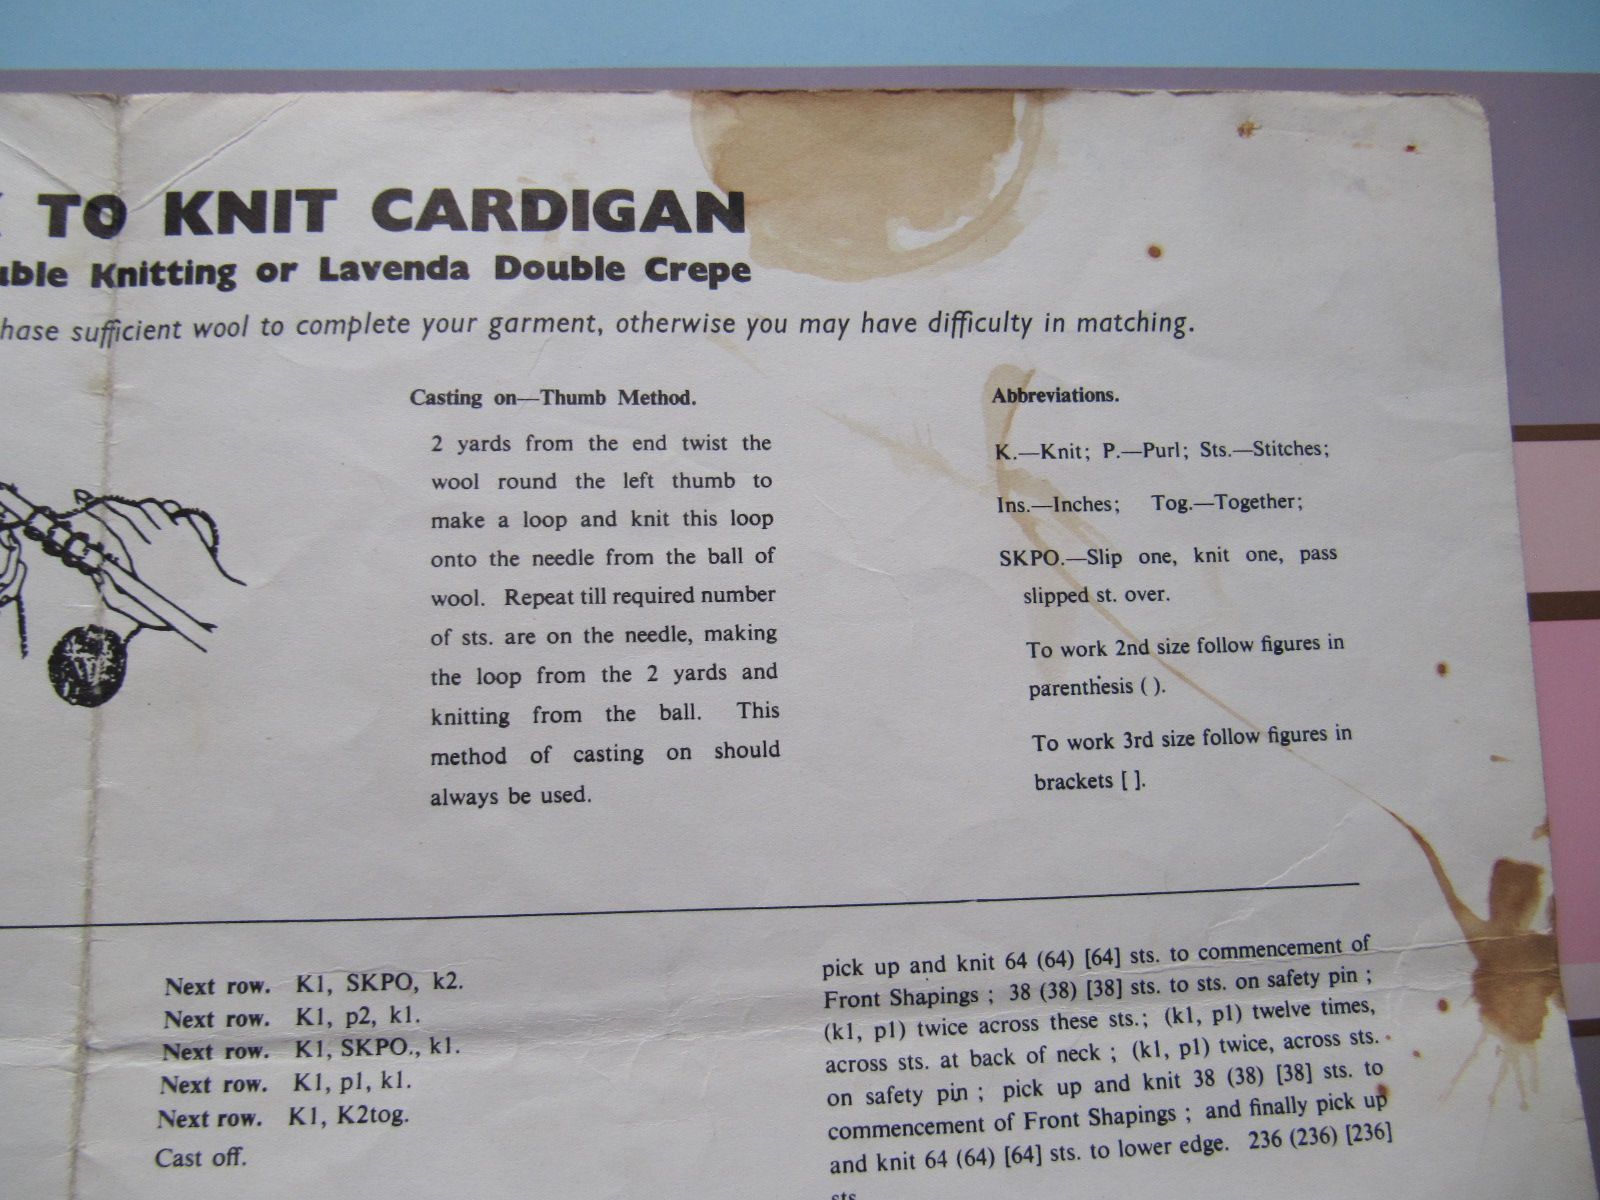 TO KNIT CARDIGAN
uble Knitting or Lavenda Double Crepe
hase sufficient wool to complete your garment, otherwise you may have difficulty in matching.
Casting on—Thumb Method.
2 yards from the end twist the
wool round the left thumb to
make a loop and knit this loop
onto the needle from the ball of
wool. Repeat till required number
of sts. are on the needle, making
the loop from the 2 yards and
knitting from the ball. This
method of casting on should
always be used.
Abbreviations.
K.—Knit; P.—Purl; Sts.—Stitches;
Ins.—Inches; Tog.—Together;
SKPO.—Slip one, knit one, pass
slipped st. over.
To work 2nd size follow figures in
parenthesis ( ).
To work 3rd size follow figures in
brackets [ ].
Next row. K1, SKPO, k2.
Next row. K1, p2, k1.
Next row. K1, SKPO., k1.
Next row. K1, p1, k1.
Next row. K1, K2tog.
Cast off.
pick up and knit 64 (64) [64] sts. to commencement of
Front Shapings ; 38 (38) [38] sts. to sts. on safety pin ;
(k1, p1) twice across these sts.; (k1, p1) twelve times,
across sts. at back of neck ; (k1, p1) twice, across sts.
on safety pin ; pick up and knit 38 (38) [38] sts. to
commencement of Front Shapings ; and finally pick up
and knit 64 (64) [64] sts. to lower edge. 236 (236) [236]
sts.